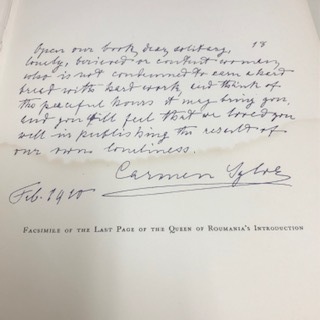 Open our book, dear solitary, 18
lonely, bereaved or content woman,
who is not condemned to earn a hard
bread with hard work, and think of
the peaceful hours it may bring you,
and you still feel that we loved you
well in publishing the result of
our own loneliness.
Carmen Sylva
Feb. 1910
FACSIMILE OF THE LAST PAGE OF THE QUEEN OF ROUMANIA'S INTRODUCTION